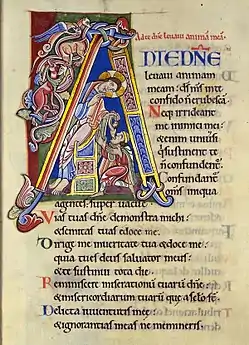 Ad te dñe leuaui animã meã.
A
DTE DÑE
leuaui animam
meam: ds̃ ms̃ in te
confido ñ erubescã.
Neq; irrideant
me inimici mei:
&enim uniũsi
q̃ sustinent te
ñ confundent̃.
Confundant̃
om̃s iniqua
agentes: super uacue
Vias tuas dñe demonstra michi:
&semitas tuas edoce me.
Dirige me in ueritate tua &doce me:
quia tu es deus saluator meus:
&te sustinui tota die.
Reminiscere miserationũ tuarũ dñe:
&misericordiarum tuarũ que a sclo st̃.
Delicta iuuentutis mee:
&ignorantias meas ne memineris.